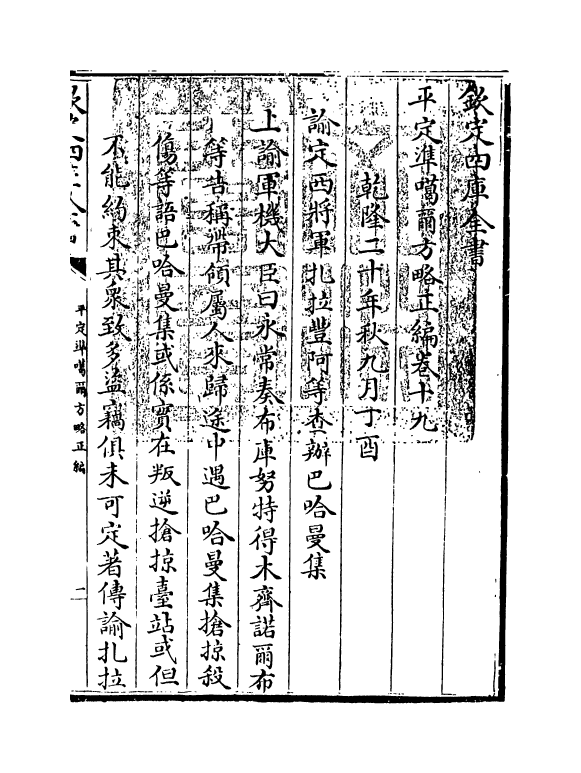 欽定四庫全書
平定準噶爾方略正編卷十九
乾隆二十年秋九月丁酉
諭定西將軍扎拉豐阿等查辦巴哈曼集
上諭軍機大臣曰永常奏布庫努特得木齊諾爾布
等告稱帶領屬人來歸途中遇巴哈曼集搶掠殺
傷等語巴哈曼集或係實在叛逆搶掠臺站或但
不能約束其衆致多盜竊俱未可定著傳諭扎拉
平定準噶爾方略正編